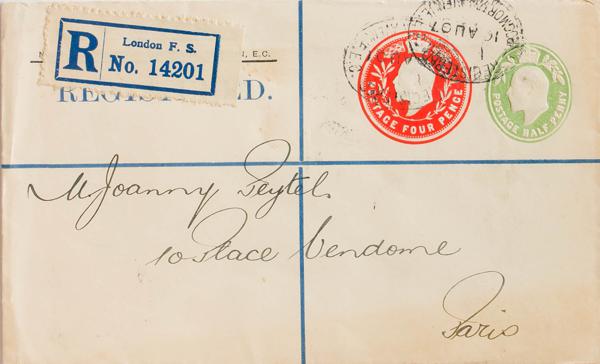 R
London F. S.
No. 14201
N, E.C.
REGIST D.
POSTAGE FOUR PENCE
POSTAGE HALF PENNY
AU 07
M. Joanny Peytel
10 Place Vendome
Paris